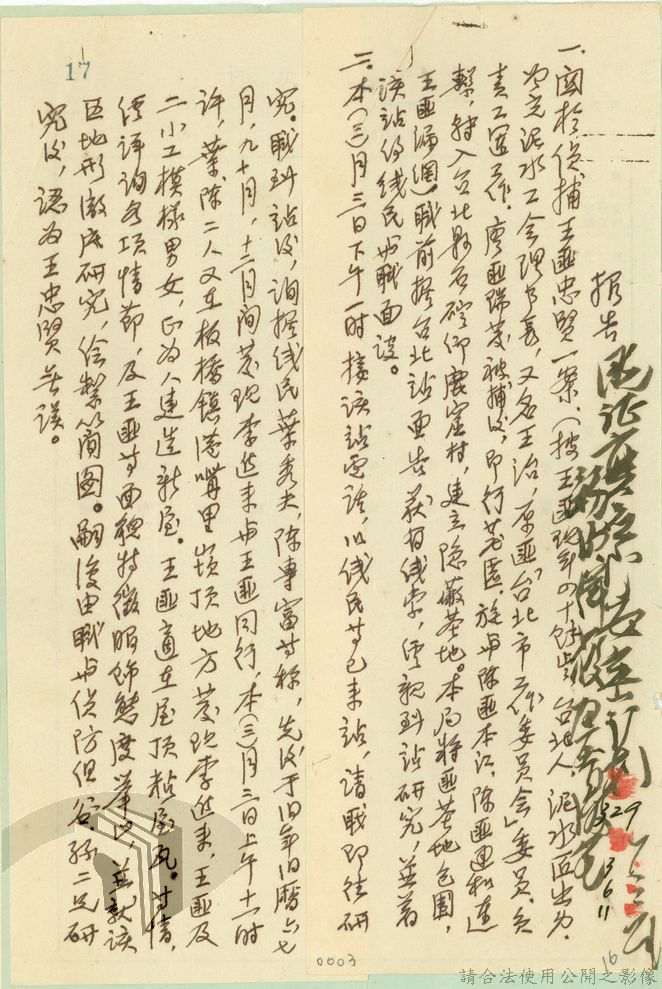 報告
一、關於偵捕王匪忠賢一案、（按王匪現年四十餘歲、台北人、泥水匠出身、
曾充泥水工會理事長，又名王治，原匪「台北市工作委員會」委員、負
責工運工作。廖匪瑞發被捕後，即行藏匿，旋與陳匪本江、陳匪通和連
繫，轉入台北縣石碇鄉鹿窟村，建立隱蔽基地。本局將匪基地包圍，
王匪漏網）職前據台北站面告獲有線索，經親到站研究，並著
該站約線民與職面談。
二、本（三）月三日下午一時接該站電話，以線民等已來站，請職即往研
究。職到站後，詢據線民葉秀夫、陳專富等称，先後于旧年旧曆六七
月，九十月，十二月間發現李匪來與王匪同行，本（三）月三日上午十一時
許，葉、陳二人又在板橋鎮港嘴里崁頂地方發現李匪來，王匪及
二小工模樣男女，正為人建造新屋。王匪適在屋頂粘屋瓦。等情，
經詳詢各項情節，及王匪等面貌特徵服飾態度舉止，並就該
區地形徹底研究，繪製簡圖。嗣復由職與偵防組谷、孫二兄研
究後，認為王忠賢無誤。
17
16
329
3 6 11
0003
請合法使用公開之影像